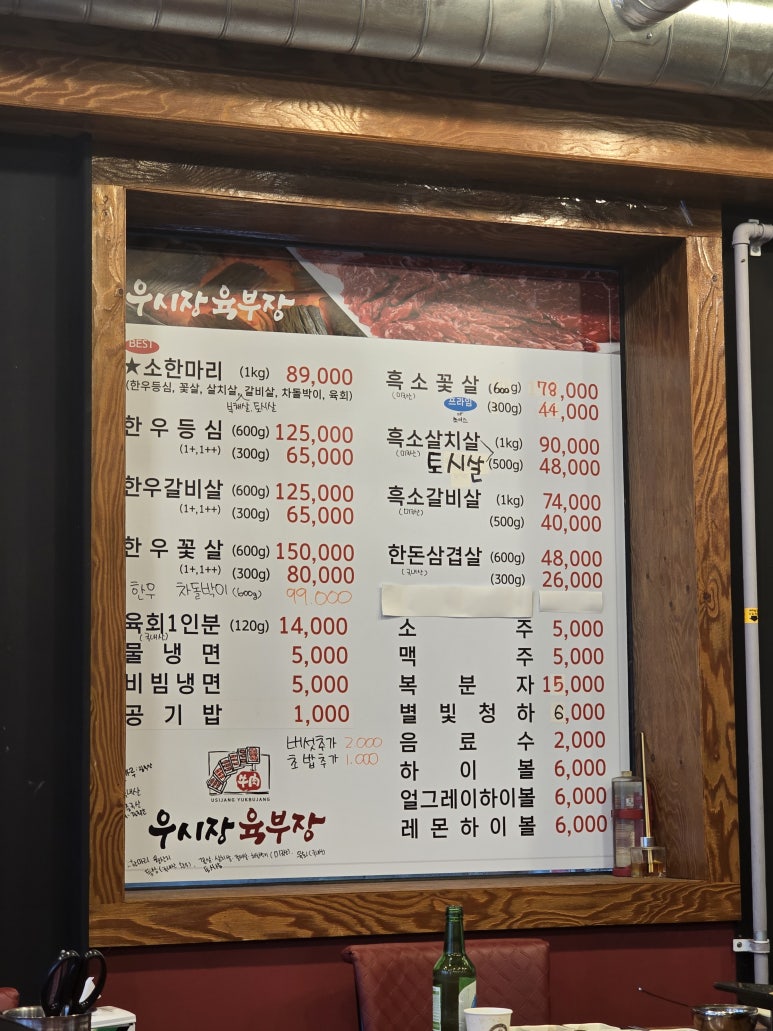 우시장 육부장
BEST
★소한마리 (1kg) 89,000
(한우등심, 꽃살, 살치살, 갈비살, 차돌박이, 육회)
부채살, 토시살
한우등심 (600g) 125,000
(1+,1++) (300g) 65,000
한우갈비살 (600g) 125,000
(1+,1++) (300g) 65,000
한우꽃살 (600g) 150,000
(1+,1++) (300g) 80,000
한우 차돌박이 (600g) 99.000
육회1인분 (120g) 14,000
(국내산)
물냉면 5,000
비빔냉면 5,000
공기밥 1,000
버섯추가 2.000
초밥추가 1.000
牛肉
USIJANG YUKBUJANG
우시장 육부장
흑소꽃살 (600g) 78,000
(미국산) 프라임 (300g) 44,000
흑소살치살 (1kg) 90,000
(미국산) 토시살 (500g) 48,000
흑소갈비살 (1kg) 74,000
(미국산) (500g) 40,000
한돈삼겹살 (600g) 48,000
(국내산) (300g) 26,000
소주 5,000
맥주 5,000
복분자 15,000
별빛청하 6,000
음료수 2,000
하이볼 6,000
얼그레이하이볼 6,000
레몬하이볼 6,000